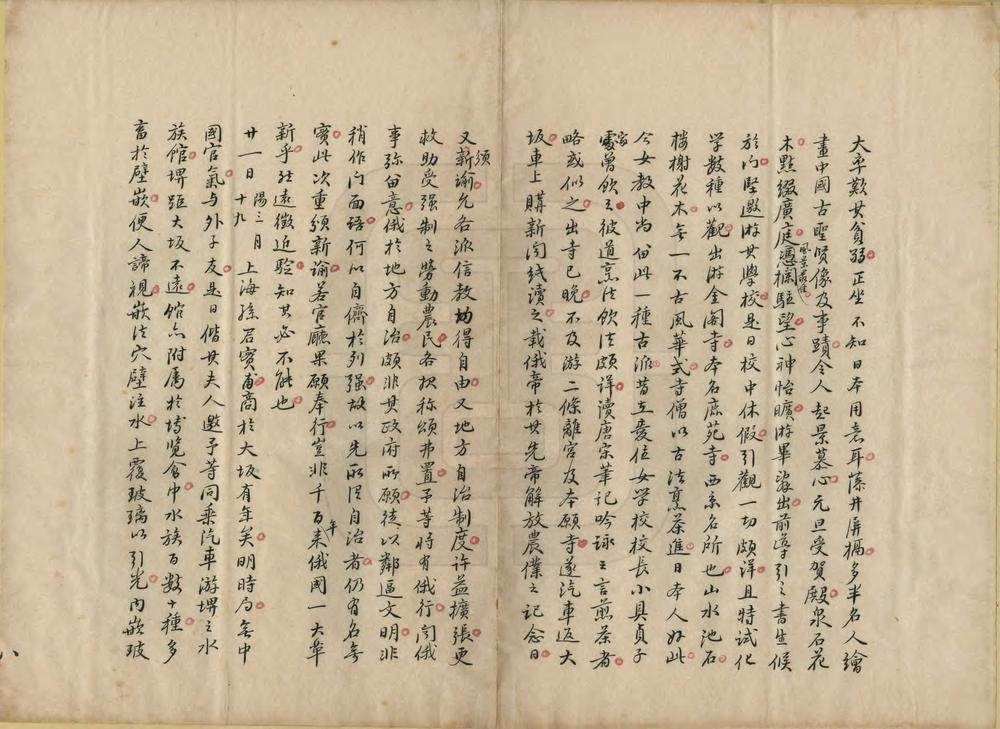 大率歎其貧弱正坐不知日本用意耳藻井屏楣多半名人繪
畫中國古聖賢像及事蹟令人起景慕心元旦受賀殿泉石花
木點綴廣庭風景最佳憑欄駐望心神怡曠游畢導出前導引之書生候
於門堅邀游其學校是日校中休假引觀一切頗詳且特試化
学數種以觀出游金閣寺本名鹿苑寺西京名所也山水池石
樓榭花木無一不古風華式寺僧以古法烹茶進日本人好此
今女教中尚留此一種古派昔在愛住女学校校長小具貞子
家曾飲之彼道烹法飲法頗詳讀唐宋筆記吟詠之言煎茶者
略或似之出寺已晚不及游二條離宮及本願寺遂汽車返大
坂車上購新聞紙讀之載俄帝於其先帝解放農僕之記念日
又頒新諭允各派信教均得自由又地方自治制度許益擴張更
救助受强制之勞動農民各报称頌弗置予等時有俄行聞俄
事弥留意俄於地方自治頗非其政府所願徒以鄰逼文明非
稍作门面語何以自儕於列强故以先所설自治者仍有名無
實此次重頒新諭若官廳果願奉行豈非千百年来俄國一大革
新乎然遠徵近驗知其必不能也
廿一日陽三月十九上海孫君實甫商於大坂有年矣明時局無中
國官氣与外子友是日偕其夫人邀予等同乘汽車游堺之水
族館堺距大坂不遠館亦附属於博覧會中水族百數十種多
畜於壁嵌便人諦視嵌法穴壁注水上覆玻璃以引光内嵌玻
八